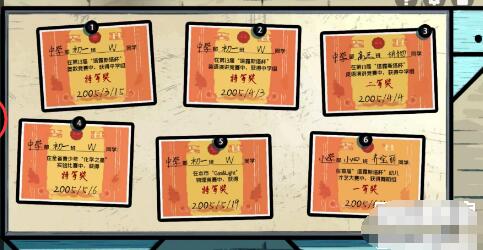 1
中学部 初一 班 W 同学
在第13届“塔露斯塔杯”
数数竞赛中,获得中学组
特等奖
2005/3/15
2
中学部 初一 班 W 同学
在第13届“塔露斯塔杯”
英语演讲竞赛中,获得中学组
特等奖
2005/4/3
3
中学部 高三 班 同学
在第13届“塔露斯塔杯”
英语演讲竞赛中,获得中学组
二等奖
2005/4/4
4
中学部 初一 班 W 同学
在全省青少年“化学之星”
实验比赛中,获得
特等奖
2005/5/6
5
中学部 初一 班 W 同学
在本市“GasLight”
物理竞赛中,获得
特等奖
2005/5/19
6
小学部 小四 齐宝丽 同学
在首届“塔露斯塔杯”幼儿
才艺大赛中,获得舞蹈组
一等奖
2005/6